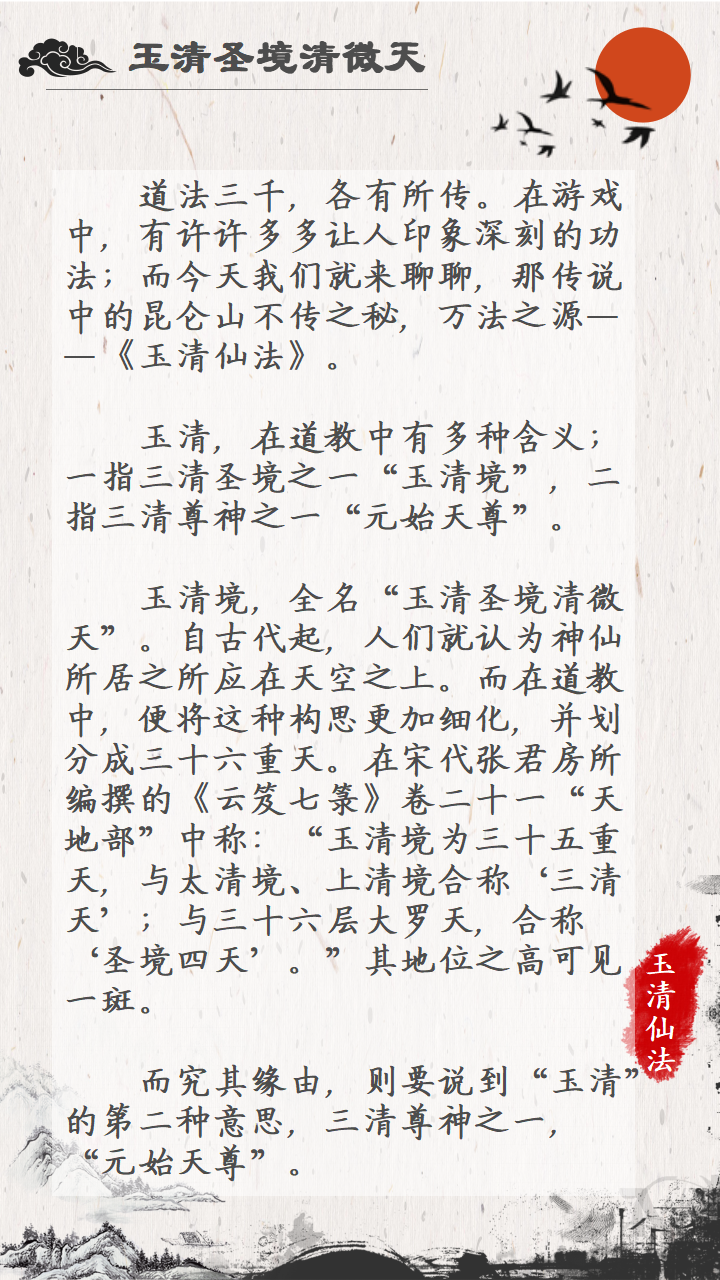 玉清圣境清微天
道法三千，各有所传。在游戏
中，有许许多多让人印象深刻的功
法；而今天我们就来聊聊，那传说
中的昆仑山不传之秘，万法之源—
—《玉清仙法》。
玉清，在道教中有多种含义；
一指三清圣境之一“玉清境”，二
指三清尊神之一“元始天尊”。
玉清境，全名“玉清圣境清微
天”。自古代起，人们就认为神仙
所居之所应在天空之上。而在道教
中，便将这种构思更加细化，并划
分成三十六重天。在宋代张君房所
编撰的《云笈七箓》卷二十一“天
地部”中称：“玉清境为三十五重
天，与太清境、上清境合称‘三清
天’；与三十六层大罗天，合称
‘圣境四天’。”其地位之高可见
一斑。
而究其缘由，则要说到“玉清”
的第二种意思，三清尊神之一，
“元始天尊”。
玉清仙法